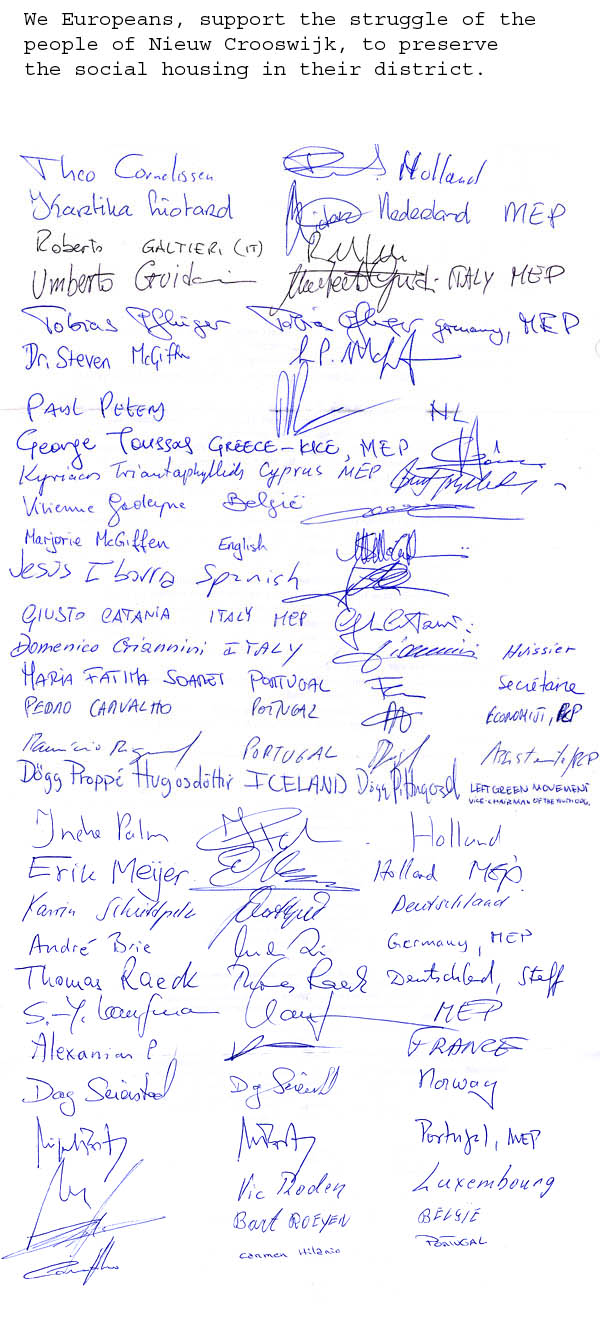 We Europeans, support the struggle of the
people of Nieuw Crooswijk, to preserve
the social housing in their district.
Theo Cornelissen Holland
Kartika Liotard Nederland MEP
Roberto GALTIERI (IT)
Umberto Guidoni ITALY MEP
Tobias Pflüger Tobias Pflüger germany, MEP
Dr. Steven McGiffen
PAUL PETERS NL
George Toussas GREECE-KKE, MEP
Kyriacos Triantaphyllides CYPRUS MEP
Vivienne België
Marjorie McGiffen English
Jesús Iborra Spanish
GIUSTO CATANIA ITALY MEP
Domenico Giannini ITALY Huissier
MARIA FATIMA PORTUGAL Secrétaire
PEDRO CARVALHO PORTUGAL ECONOMIST, PCP
PORTUGAL
Dögg Proppé Hugosdóttir ICELAND LEFT GREEN MOVEMENT
VICE-CHAIRMAN OF THE YOUTH ORG.
Ineke Palm Holland
Erik Meijer Holland MEP
Karin Deutschland
André Brie Germany, MEP
Thomas Raeck Thomas Raeck Deutschland, Staff
MEP
Alexanian P FRANCE
Dag Seierstad Norway
Portugal, MEP
Vic Luxembourg
Bart ROEYEN BELGIE
Carmen Hilario PORTUGAL